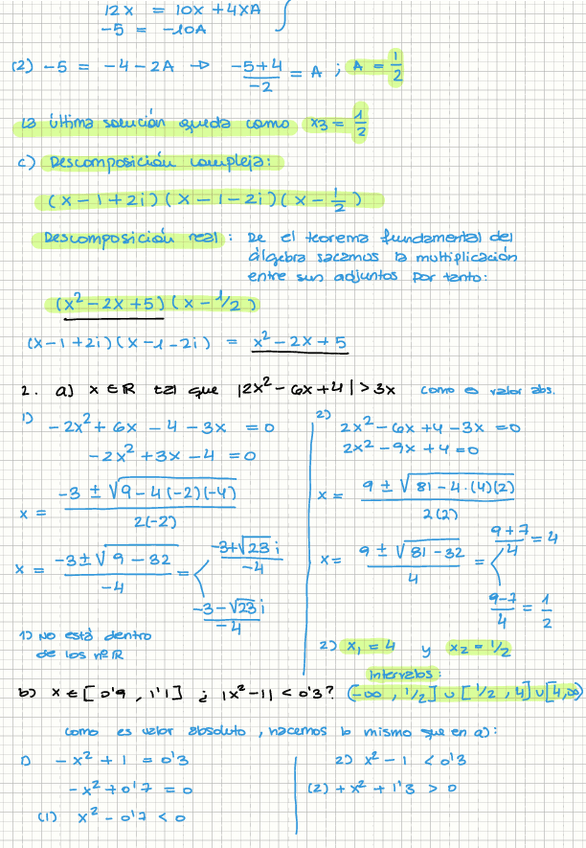 12x = 10x + 4xA
-5 = -10A
(2) -5 = -4 - 2A → (-5+4)/(-2) = A ; A = 1/2
la última solución queda como x3 = 1/2
c) Descomposición compleja:
(x-1+2i)(x-1-2i)(x-1/2)
Descomposición real: De el teorema fundamental del
álgebra sacamos la multiplicación
entre sus adjuntos por tanto:
(x²-2x+5)(x-1/2)
(x-1+2i)(x-1-2i) = x²-2x+5
2. a) x∈ℝ tal que |2x²-6x+4| > 3x como es valor abs.
1) -2x²+6x-4-3x = 0
-2x²+3x-4 = 0
x = (-3 ± √(9-4(-2)(-4)))/(2(-2))
x = (-3 ± √(9-32))/(-4) = < (-3+√23 i)/(-4)
(-3-√23 i)/(-4)
1) No está dentro
de los nº ℝ
2) 2x²-6x+4-3x = 0
2x²-9x+4 = 0
x = (9 ± √(81-4·(4)(2)))/(2(2))
x = (9 ± √(81-32))/4 = < (9+7)/4 = 4
(9-7)/4 = 1/2
2) x₁ = 4 y x₂ = 1/2
Intervalos:
b) x∈[0'9, 1'1] ¿ |x²-1| < 0'3? (-∞, 1/2] ∪ [1/2, 4] ∪ [4, ∞)
como es valor absoluto, hacemos lo mismo que en a):
1) -x²+1 = 0'3
-x²+0'7 = 0
(1) x²-0'7 < 0
2) x²-1 < 0'3
(2) +x²+1'3 > 0